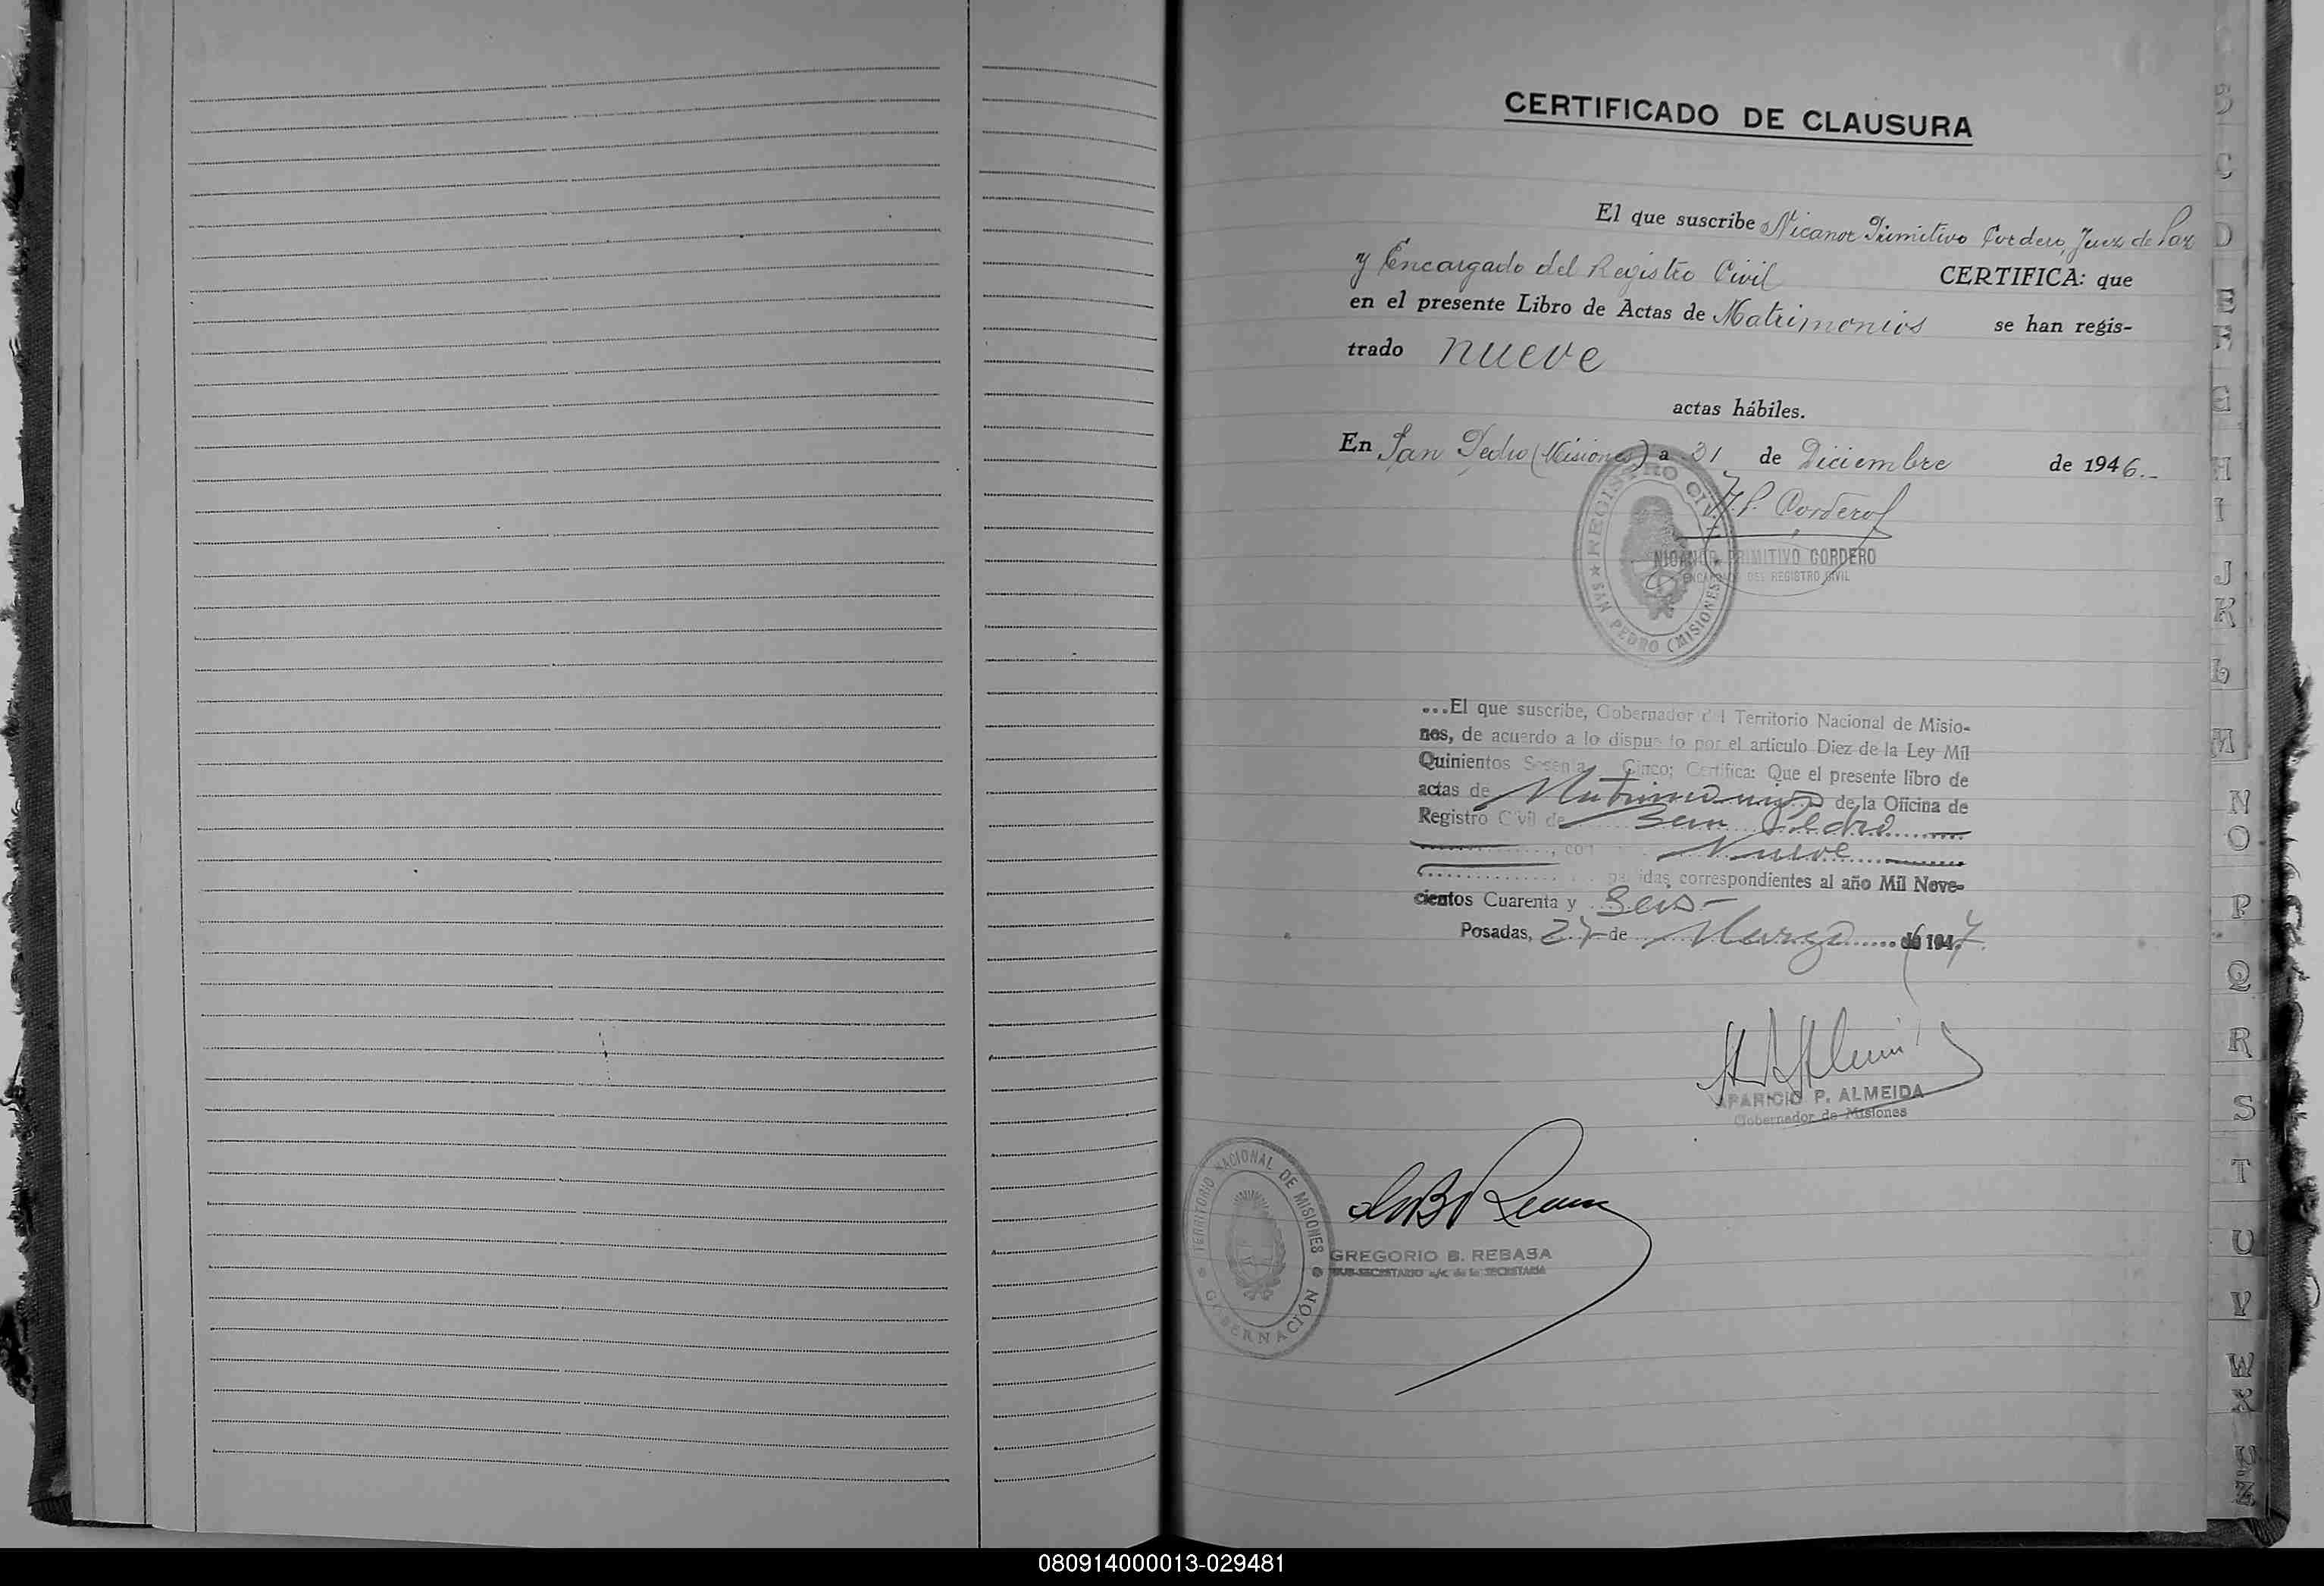 CERTIFICADO DE CLAUSURA
El que suscribe Nicanor Primitivo Cordero, Juez de Paz
y Encargado del Registro Civil CERTIFICA: que
en el presente Libro de Actas de Matrimonios se han regis-
trado nueve
actas hábiles.
En San Pedro (Misiones) a 31 de Diciembre de 1946.-
N. P. Cordero
REGISTRO CIVIL
SAN PEDRO (MISIONES)
NICANOR PRIMITIVO CORDERO
ENCARGADO DEL REGISTRO CIVIL
...El que suscribe, Gobernador del Territorio Nacional de Misio-
nes, de acuerdo a lo dispuesto por el artículo Diez de la Ley Mil
Quinientos Sesenta Cinco; Certifica: Que el presente libro de
actas de Matrimonios de la Oficina de
Registro Civil de San Pedro
Nueve
partidas correspondientes al año Mil Nove-
cientos Cuarenta y Seis-
Posadas, 27 de Marzo de 1947.
APARICIO P. ALMEIDA
Gobernador de Misiones
TERRITORIO NACIONAL DE MISIONES
GOBERNACIÓN
GREGORIO B. REBASA
SUB-SECRETARIO a/c. de la SECRETARIA
B
C
D
E
F
G
H
I
J
K
L
M
N
O
P
Q
R
S
T
U
V
W
X
Y
Z
080914000013-029481